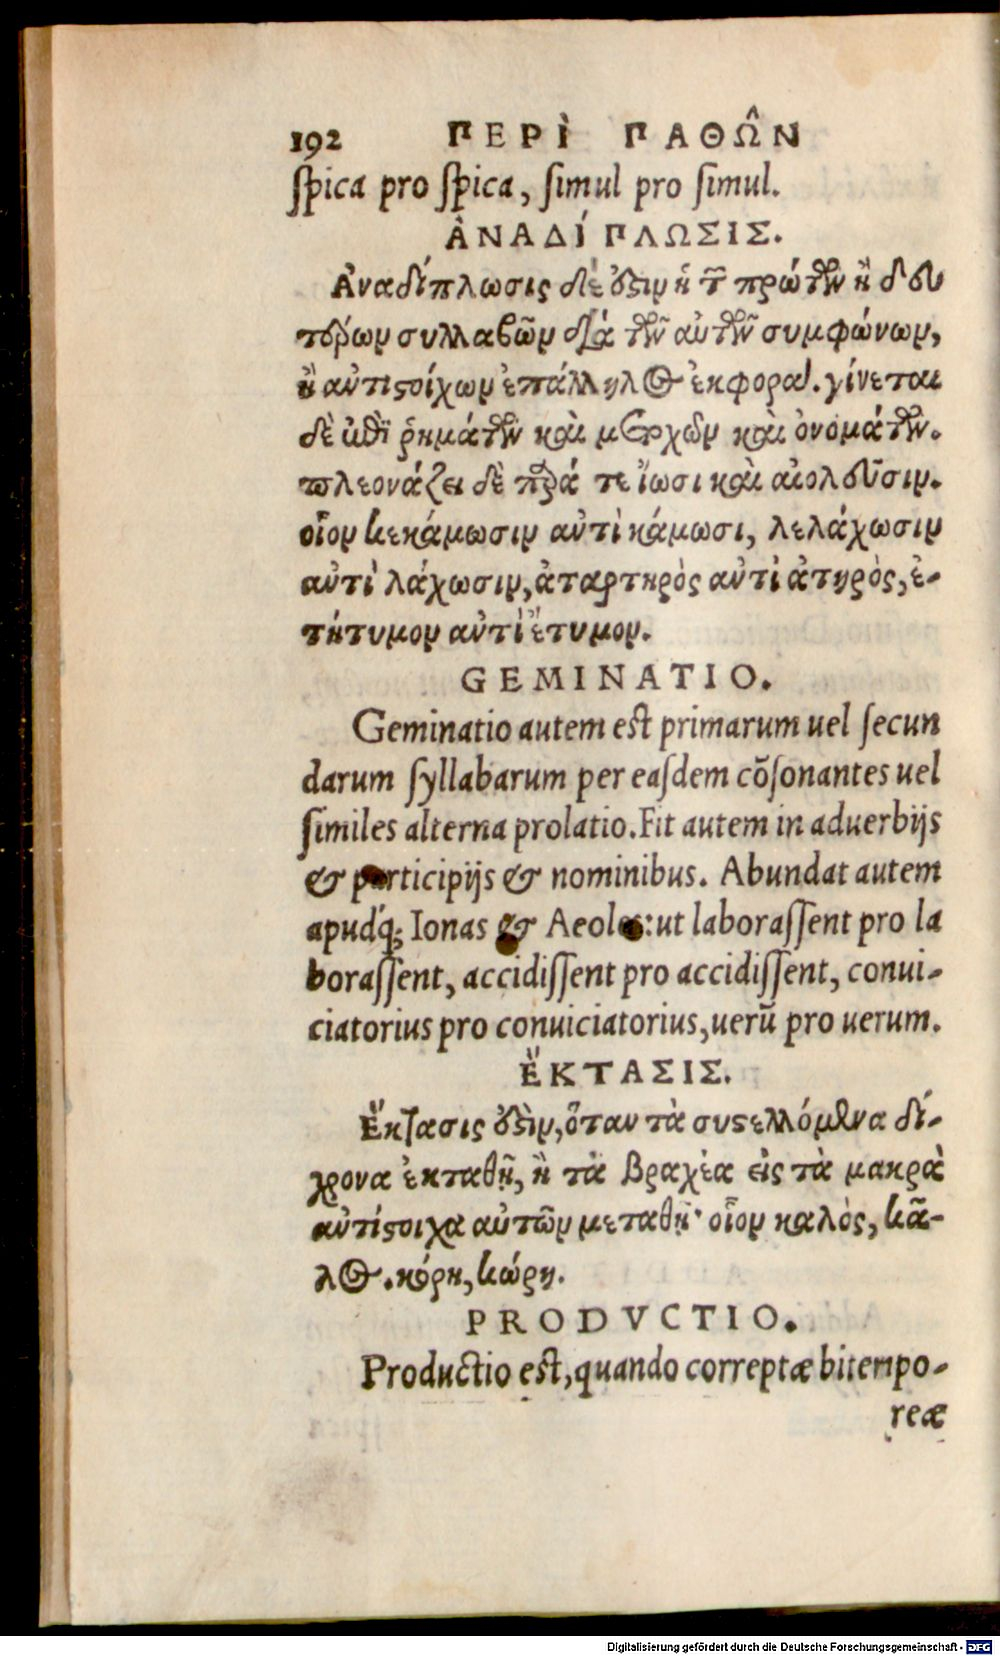 192 ΠΕΡῚ ΠΑΘΩ͂Ν
ſpica pro ſpica, ſimul pro ſimul.
ἈΝΑΔΊΠΛΩΣΙΣ.
Ἀναδίπλωσις δέ ὅξιν ἡ τ͂ πρώτων ἢ δου
τόρων συλλαβῶν διὰ τῶν αὐτῶν συμφώνων,
ἢ αὐτιςοίχων ἐπάλληλος ἐκφορα. γίνεται
δὲ ὑπὶ ῥημάτων καὶ μετοχῶν καὶ ὀνομάτων.
πλεονάζει δὲ πρά τε ἴωσι καὶ αἰολεῦσιν.
οἷον κεκάμωσιν αὐτὶ κάμωσι, λελάχωσιν
αὐτὶ λάχωσιν, ἀταρτηρὸς αὐτὶ ἀτηρὸς, ἐ-
τήτυμον αὐτὶ ἔτυμον.
GEMINATIO.
Geminatio autem est primarum uel ſecun
darum ſyllabarum per eaſdem cōſonantes uel
ſimiles alterna prolatio. Fit autem in aduerbijs
& participijs & nominibus. Abundat autem
apudq́; Ionas & Aeoles: ut laboraſſent pro la
boraſſent, accidiſſent pro accidiſſent, conui-
ciatorius pro conuiciatorius, uerū pro uerum.
ἜΚΤΑΣΙΣ.
Ἔκτασις ὅξὶν, ὅταν τὰ συςελλόμενα δί-
χρονα ἐκταθῇ, ἢ τὰ βραχέα εἰς τὰ μακρὰ
αὐτίςοιχα αὐτῶν μεταθῇ· οἷον καλὸς, κᾶ-
λος. κόρη, κώρη.
PRODVCTIO.
Productio est, quando correptæ bitempo-
reæ
Digitalisierung gefördert durch die Deutsche Forschungsgemeinschaft - DFG